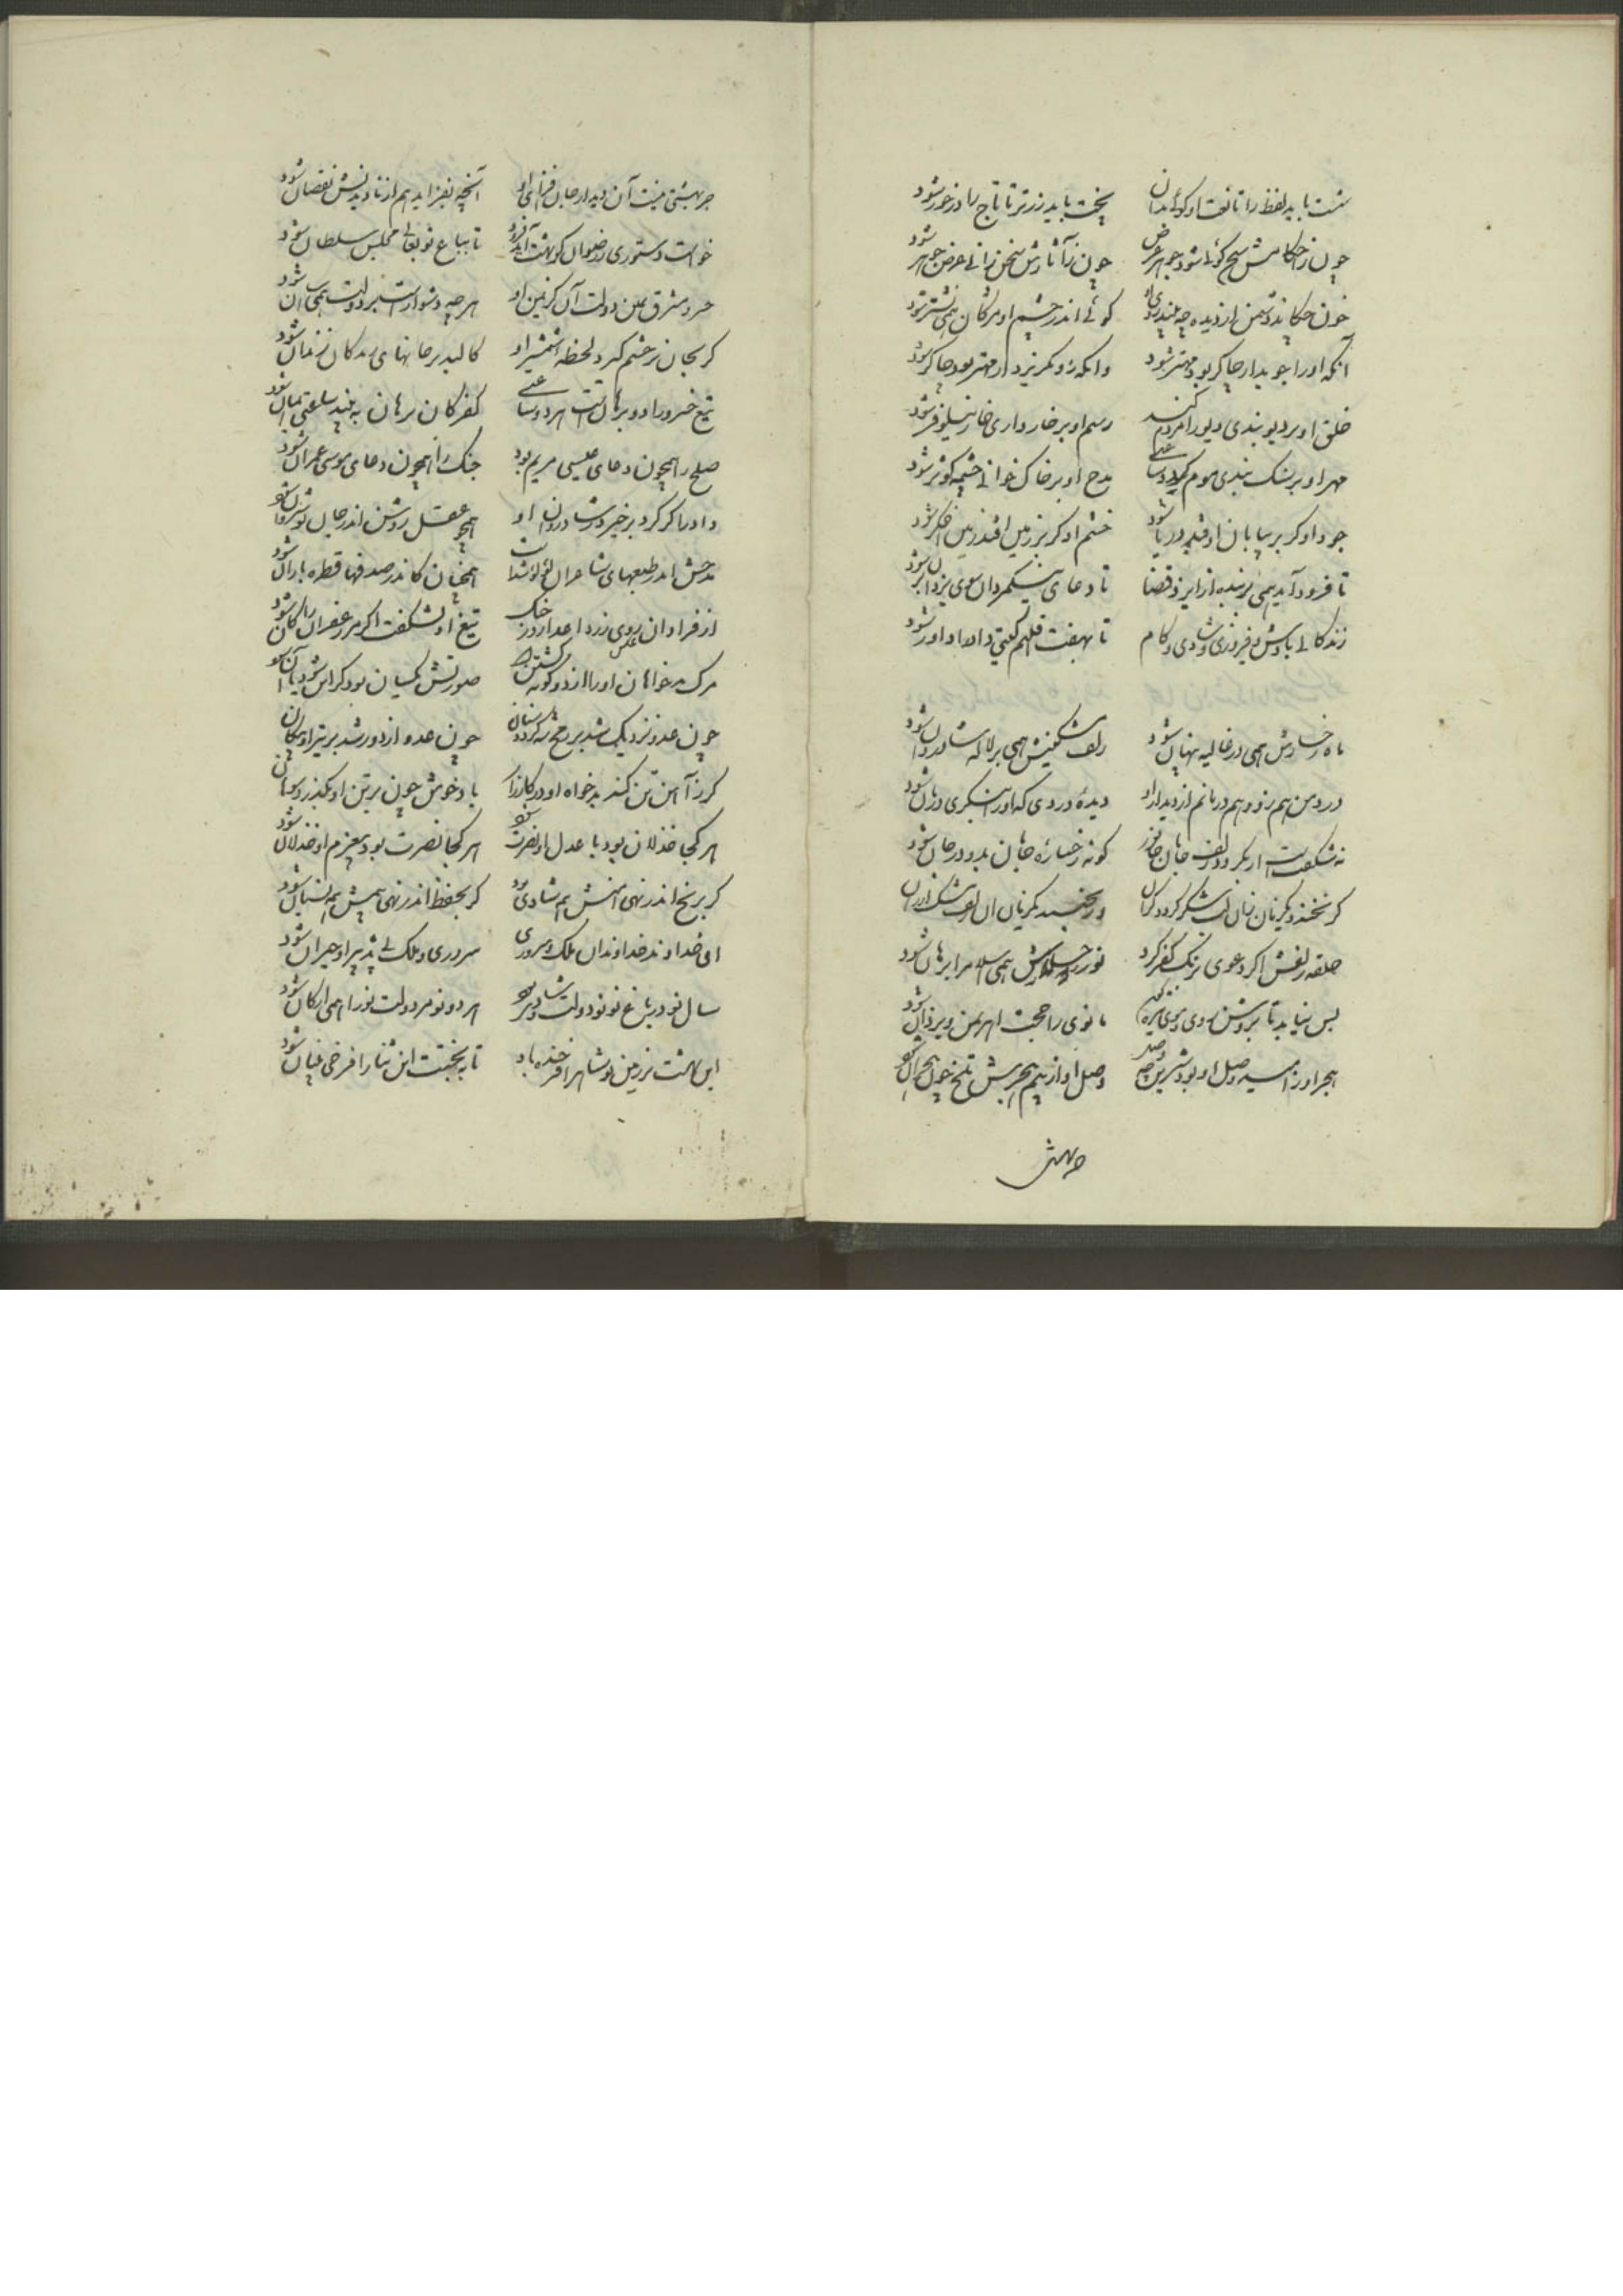 سخت باید لفظ را تا نعت او کوید بدان بخت باید زر تر تا تاج را در خور شود
چون ز احکامش سخن کوئی شود جوهر عرض چون ز آثارش سخن رانی عرض جوهر شود
خون چکاند دشمن از دیده چو بیند روی او کوئی اندر چشم او مژکان همی نشتر شود
آنکه او را جوید ار چاکر بود مهتر شود وانکه زو بکریزد ار مهتر بود چاکر شود
خلق او بر دیو بندی دیو را مردم کند رسم او بر خار داری خار نیلوفر شود
مهر او بر سنک بندی موم کردد ساعتی مدح او بر خاک خوانی چشمه کوثر شود
جود او کر بر بیابان اوفتد دریا شود خشم او کر بر زمین افتد زمین اخکر شود
تا فرود آید همی بر بنده از ایزد قضا تا دعای نیکمردان سوی یزدان بر شود
زندکانی بادش و فیروزی و شادی و کام تا بهفت اقلیم کیتی داد او داور شود
ماه رخسارش همی در غالیه پنهان شود زلف مشکینش همی بر لاله شادروان شود
درد من هم زو و هم درمانم از دیدار او دیده دردی که او را بنکری درمان شود
نه شکفت ار بکردد زلف جانان جان کونه رخساره جانان بدو در جان شود
کر بخندد یکزمان زان لب شکر کردد کران ور بجنبد یکزمان زان زلف مشک ارزان شود
حلقه زلفش اکر دعوی برنک کفر کرد نور رخسارش همی اسلام را برهان شود
بس نیاید تا بروشن روی و موی تیره مانوی را حجت اهرمن و یزدان شود
هجر او ز امید وصل او بود شیرین چو وصل او از بیم هجرش تلخ چون هجران شود
چو بهشتی
چو بهشتی نیست آن دیدار جان افزای او آنچه بفزاید هم از نادیدنش نقصان شود
خواست دستوری ز رضوان کو بهشت آید فرود تا بباغ نو بعالی مجلس سلطان شود
خسرو مشرق یمین دولت آن کز یمن او هر چه دشوارست بر دولت همی آسان شود
کر بجان بر خشم کیرد لحظه شمشیر او کالبد بر جانهای بندکان زندان شود
تیغ خسرو را دو برهان است هر دو ساعتی کفر کان برهان به بیند ساعتی ایمان شود
صلح را همچون دعای عیسی مریم بود جنک را همچون دعای موسی عمران شود
داد را کر کرد بر خیزد شادروان او همچو عقل روشن اندر جان نوشروان شود
مدحش اندر طبعهای شاعران لؤلؤ شدست همچنان کاندر صدفها قطره باران شود
از فراوان روی زرد اعدا در جنک تیغ او نشکفت اکر مر زعفران را کان شود
مرک بدخواهان او را از دو کونه صورتش یکسان بود کر این شود یا آن شود
چون عدو نزدیک شد بر رمح کردد سنان چون عدو از دور شد بر تیر او پیکان شود
کر ز آهن تن کند بدخواه او در کارزار باد خوش چون بر تن او بکذرد سوهان شود
هر کجا خذلان بود با عدل او نصرت شود هر کجا نصرت بود بی عزم او خذلان شود
کر برنج اندر نهی امنش هم شادی بود کر بحفظ اندر نهی بیمش هم نسیان شود
ای خداوند خداوندان ملک و سروری سروری و ملک بی تدبیر او حیران شود
سال نو در باغ نو نو دولت شاد بو هر دو نو مر دولت نو را همی ارکان شود
این بهشت بر زمین نو شاه را فرخنده باد تا بخجسته این بنا را فرخی بنیان شود